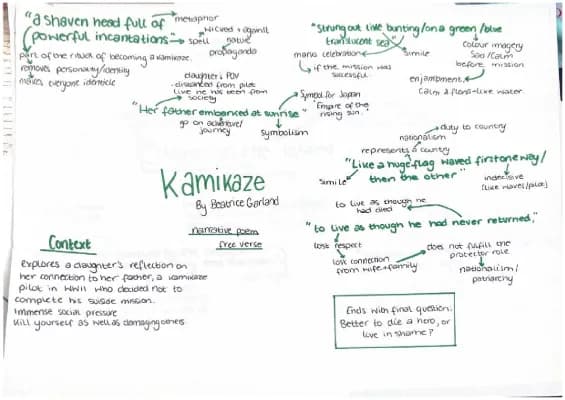 "a shaven head full of → metaphor
powerful incantations" → spell
wicked + against
satire
propaganda
part of the ritual of becoming a kamikaze.
removes personality/identity
makes everyone identicle
daughter's POV
- distanced from pilot
like he has been from
society
"Her father embarked at sunrise"
go on adventure/
journey
symbolism
Symbol for Japan
'Empire of the
rising sun.'
"Strung out like bunting/on a green/blue
translucent sea"
marks celebration
simile
↳ if the mission was
sucessful.
colour imagery
Sea/calm
before mission
enjambment.
Calm & flows-like water.
duty to country
nationalism
represents a country
"Like a huge flag waved first one way/
then the other"
simile
indecisive
(like waves/pilot)
to live as though he
had died
"to live as though he had never returned,"
lost respect
lost connection
from wife+family
does not fulfill the
protector role
nationalism/
patriarchy
Kamikaze
By Beatrice Garland
narrative poem
free verse
Context
Explores a daughter's reflection on
her connection to her father, a kamikaze
pilot in WWII who decided not to
complete his suicide mission.
Immense social pressure
Kill yourself as well as damaging others
Ends with final question.
Better to die a hero, or
live in shame?